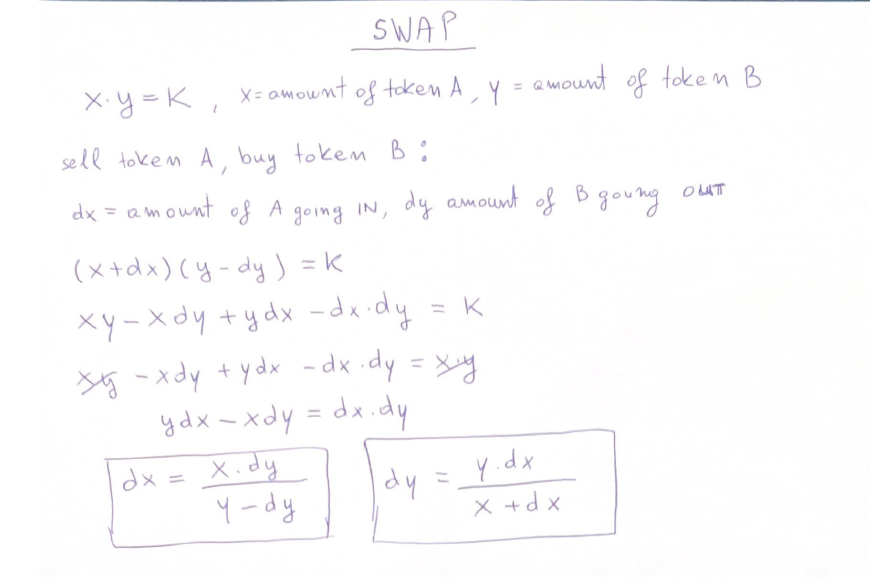 SWAP
x·y = K , x = amount of token A , y = amount of token B
sell token A, buy token B :
dx = amount of A going IN, dy amount of B goung OUT
(x+dx)(y-dy) = K
xy - xdy + ydx - dx·dy = K
xy - xdy + ydx - dx·dy = x·y
ydx - xdy = dx·dy
dx = x·dy / y-dy    dy = y·dx / x+dx